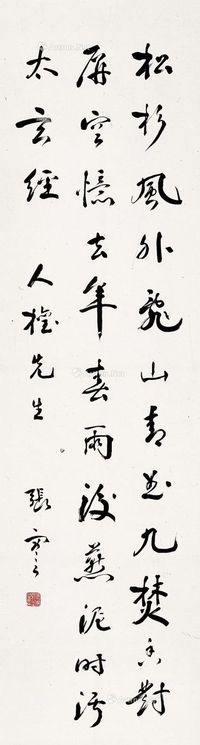 松杉風外亂山青曲几焚香對
屏空憶去年春雨後燕泥时污
太玄經 人先生 張